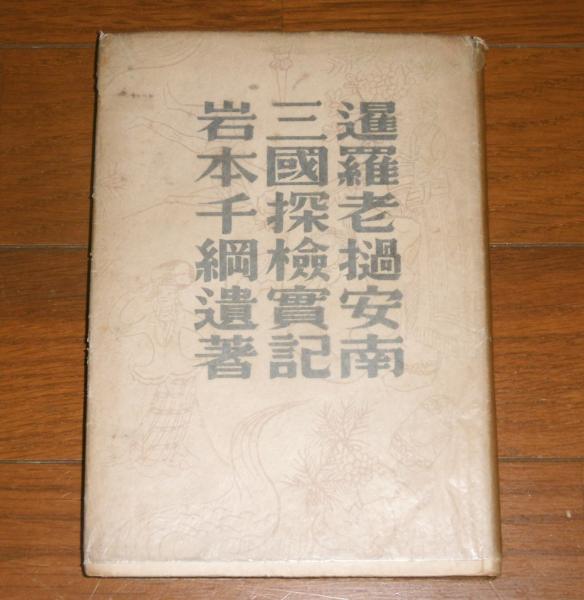 暹羅老撾安南
三國探檢實記
岩本千綱遺著